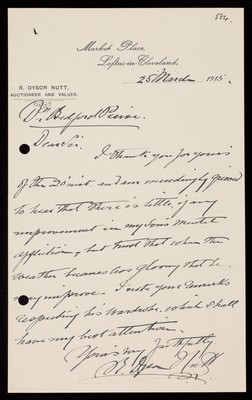 Market Place,
Loftus-in-Cleveland,
25 March 1915.
R. DYSON NUTT,
AUCTIONEER AND VALUER.
Dr. Bedford Pierce.
Dear Sir,
I thank you for yours
of the 23d inst. and am exceedingly grieved
to hear that there is little, if any
improvement in my son's mental
affliction, but trust that when the
weather becomes less gloomy that he
may improve. I note your remarks
respecting his wardrobe, which shall
have my best attention.
Yours very faithfully,
R. Dyson Nutt